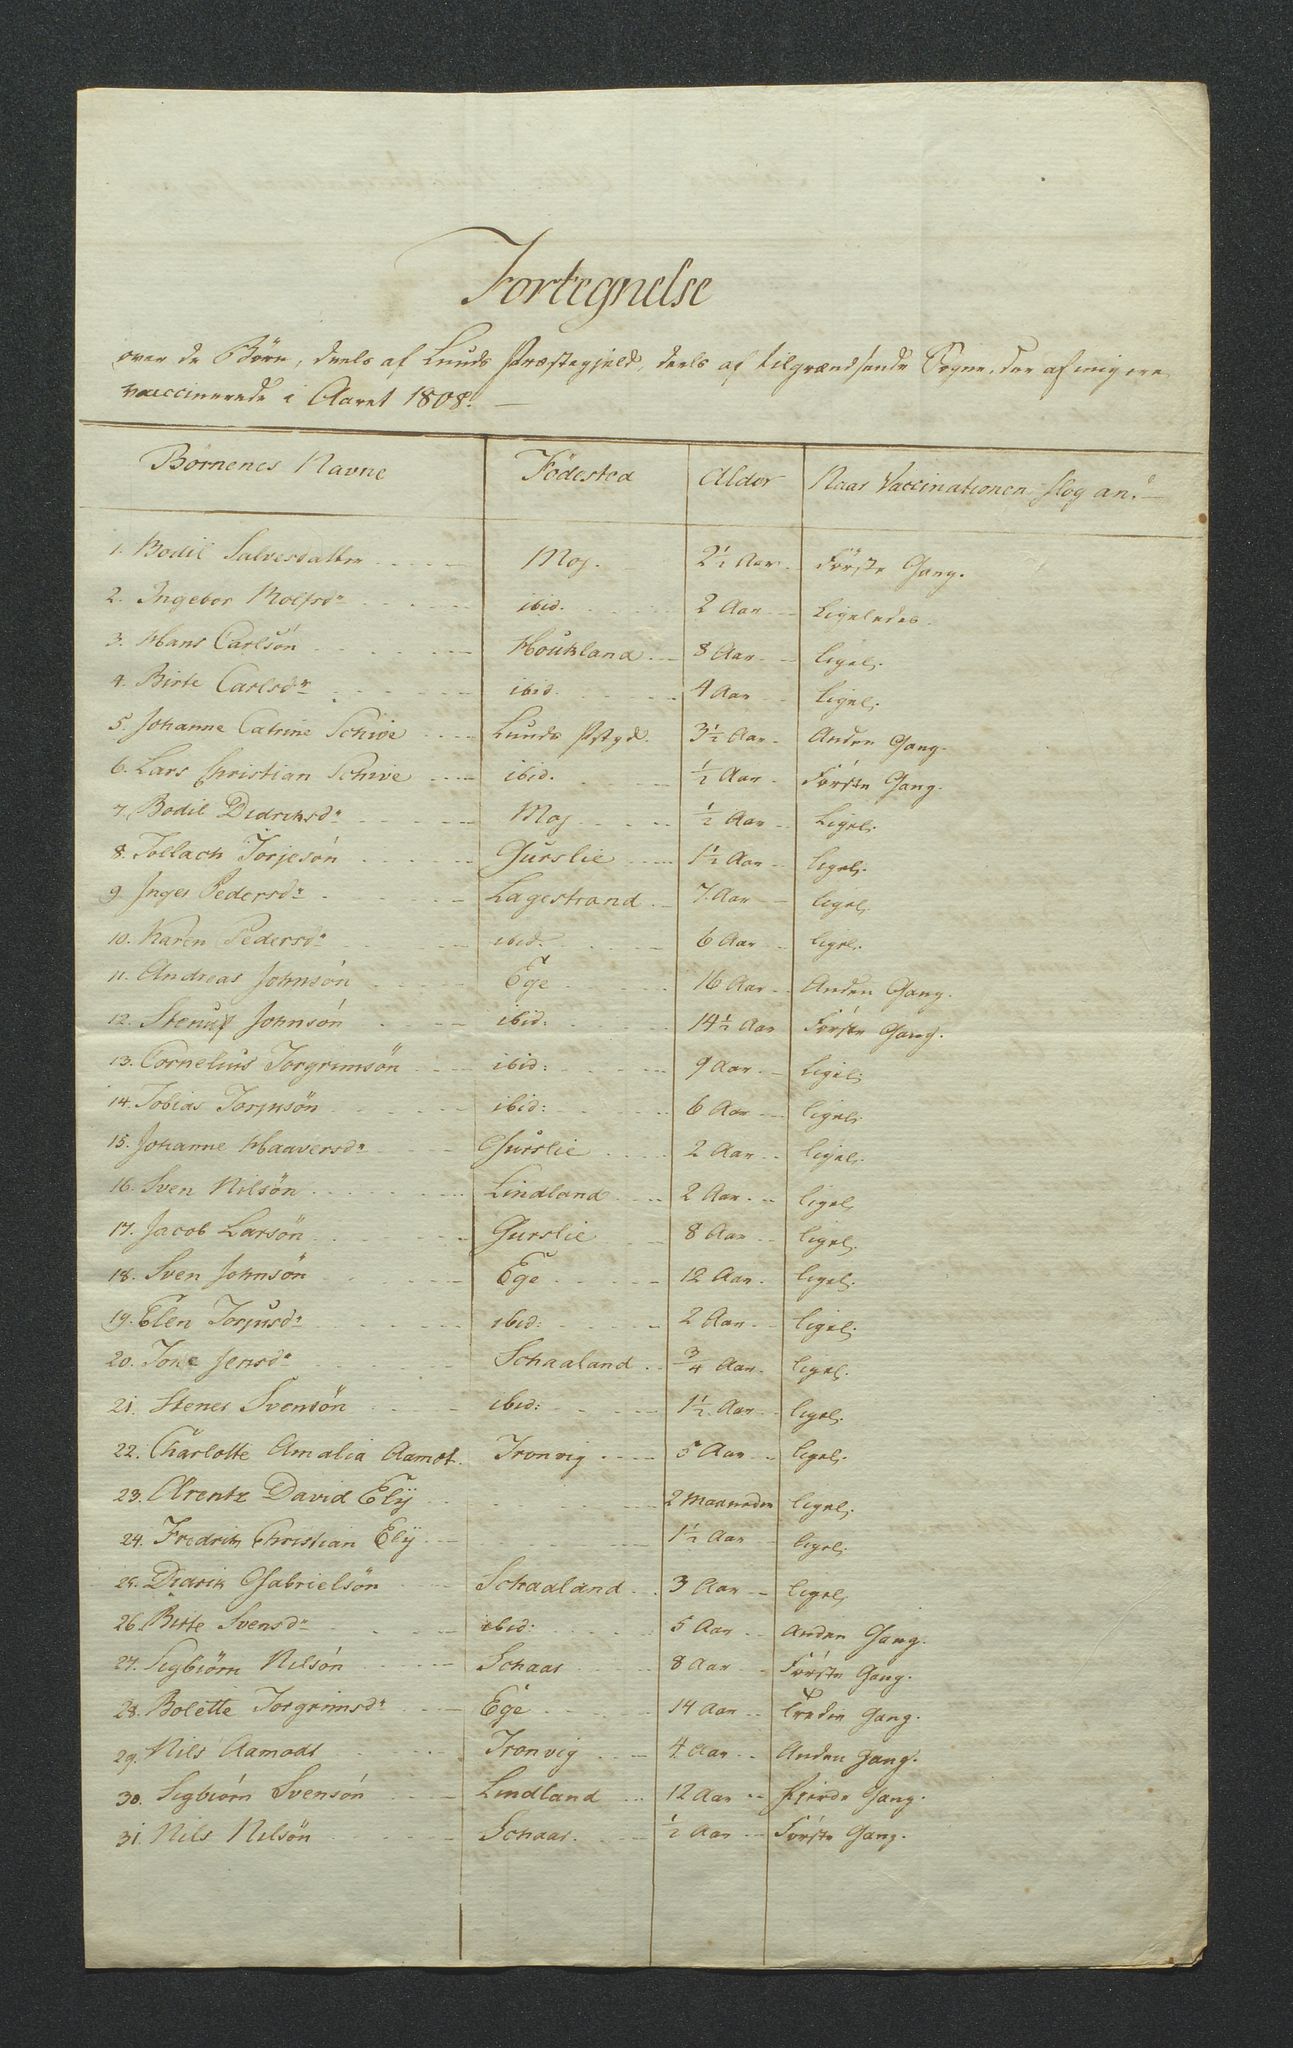 Fortegnelse
over de Börn, deels af Lunds Præstegjeld, deels af tilgrændsende Sogne, der af mig ere
vaccinerede i Aaret 1808. —
Börnenes Navne Födested Alder Naar Vaccinationen slog an. —
1. Bodil Salvesdatter Moj. 2 1/2 Aar Förste Gang.
2. Ingebor Rolfsdr ibid. 2 Aar Ligeledes.
3. Hans Carlsön Houkland 8 Aar ligel:
4. Birte Carlsdr ibid. 4 Aar ligel:
5. Johanne Catrine Schive Lunds Pstgd. 3 1/2 Aar Anden Gang.
6. Lars Christian Schive ibid. 1/2 Aar Förste Gang.
7. Bodil Didriksdr Moj 1/2 Aar Ligel:
8. Tollach Torjesön Gurslie 1 1/2 Aar ligel:
9. Inger Pedersdr Lagestrand 7 Aar ligel:
10. Karen Pedersdr ibid: 6 Aar ligel:
11. Andreas Johnsön Ege 16 Aar Anden Gang.
12. Johnsön ibid: 14 1/2 Aar Förste Gang.
13. Cornelius Torgrimsön ibid: 9 Aar Ligel:
14. Tobias Torjusön ibid: 6 Aar ligel:
15. Johanne Haaversdr Gurslie 2 Aar ligel:
16. Sven Nilsön Lindland 2 Aar ligel:
17. Jacob Larsön Gurslie 8 Aar ligel:
18. Sven Johnsön Ege 12 Aar ligel:
19. Elen Torjusdr ibid: 2 Aar ligel:
20. Tone Jensdr Schaaland 3/4 Aar ligel:
21. Stener Svensön ibid: 1 1/2 Aar ligel:
22. Charlotte Amalia Aamot Tronvig 5 Aar ligel:
23. Arentz David Elÿ 2 Maaneder ligel:
24. Fredrik Christian Elÿ 1 1/2 Aar ligel:
25. Didrik Gabrielsön Schaaland 3 Aar ligel:
26. Birte Svensdr ibid: 5 Aar Anden Gang.
27. Sigbiörn Nilsön Schaar 8 Aar Förste Gang.
28. Bolette Torgrimsdr Ege 14 Aar Tredie Gang.
29. Nils Aamodt Tronvig 4 Aar Anden Gang.
30. Sigbiörn Svensön Lindland 12 Aar Fjerde Gang.
31. Nils Nilsön Schaar. 1/2 Aar Förste Gang.